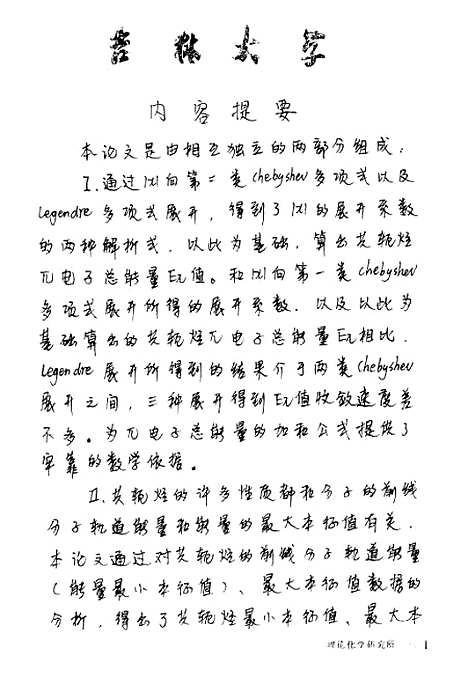 吉林大学
内容提要
本论文是由相互独立的两部分组成：
I.通过|x|向第二类Chebyshev多项式以及
Legendre多项式展开，得到了|x|的展开系数
的两种解析式．以此为基础，算出共轭烃
π电子总能量Eπ值。和|x|向第一类Chebyshev
多项式展开所得的展开系数．以及以此为
基础算出的共轭烃π电子总能量Eπ相比．
Legendre展开所得到的结果介于两类Chebyshev
展开之间，三种展开得到Eπ值收敛速度差
不多。为π电子总能量的加和公式提供了
牢靠的数学依据。
II.共轭烃的许多性质都和分子的前线
分子轨道能量和能量的最大本征值有关．
本论文通过对共轭烃的前线分子轨道能量
(能量最小本征值)、最大本征值数据的
分析，得出了共轭烃最小本征值、最大本
理论化学研究所 1